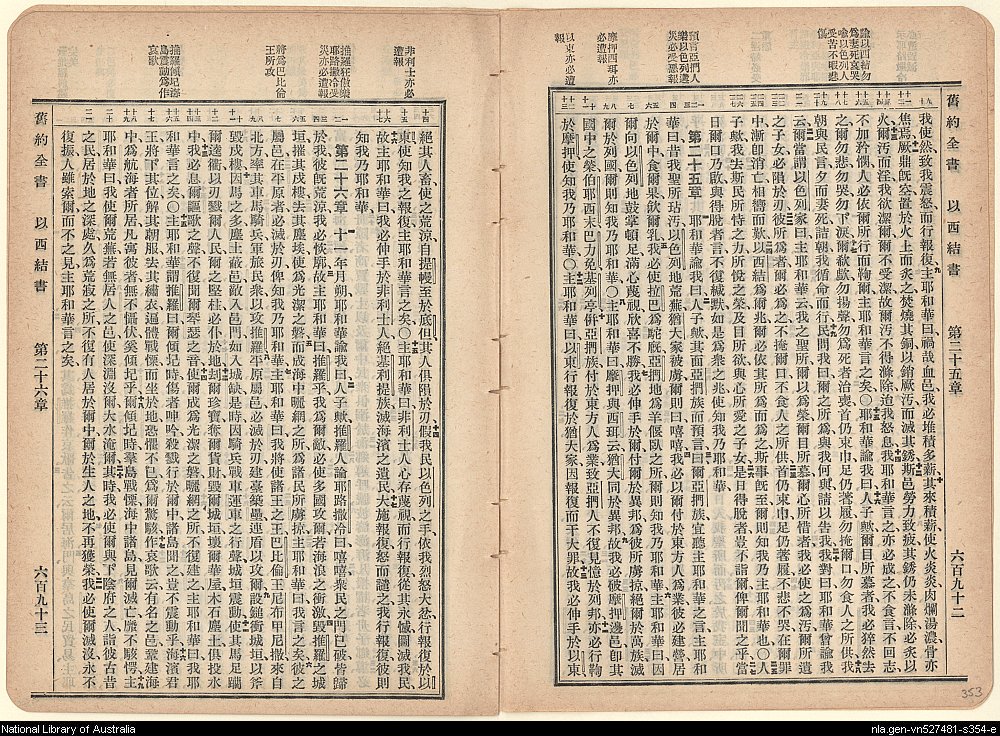 舊約全書 以西結書 第二十五章 六百九十二
我使然致我震怒而行報復主耶和華曰禍哉血邑我必堆積多薪其來積薪使火炎炎肉爛湯濃骨亦
焦焉厥鼎既空置於火上而炙之焚燒其銅以銷厥汚而滅其銹斯邑勞力致疲其銹仍未滌除必炙以
火爾汚而淫我欲潔爾爾不受潔故爾汚不得滌除迨我怒息我耶和華言之亦必成之不食言不回志
不加矜憫人必依爾所行而鞫爾主耶和華言之矣〇耶和華諭我曰人子歟爾目所慕者我必猝然去
之爾勿悲勿哭勿下淚爾欷歔勿揚聲勿爲死者治喪首仍束巾足仍着履勿掩爾口勿食人之所供我
朝與民言夕而妻死詰朝我循命而行民問我曰爾之所爲與我何與請以告我我對曰耶和華曾諭我
云爾當謂以色列家曰主耶和華云我之聖所爾以爲榮爾目所慕爾心所惜者我必使之爲汚爾所遺
之子女必隕於刃彼所爲者爾必爲之不掩爾口不食人之所供首仍束巾足仍着履不悲不哭在爾罪
中漸即消亡相嚮而歎以西結爲爾兆爾必依其所爲而爲之斯事既至爾則知我乃主耶和華也〇人
子歟我去斯民所恃之力所悅之榮及目所欲與心所愛之子女是日得脫者豈不詣爾俾爾聞之乎當
日爾口乃啟與得脫者言不復緘默如是爲衆之兆使知我乃耶和華
第二十五章 耶和華諭我曰人子歟其面亞捫族而預言曰爾亞捫族宜聽主耶和華之言主耶和
華曰昔我聖所玷汚以色列地荒蕪猶大家被虜爾則曰嘻嘻我必以爾付於東方人爲業彼必建營居
於爾中食爾果飲爾乳我必使拉巴爲駝廐亞捫地爲羊偃臥之所爾則知我乃耶和華主耶和華曰因
爾向以色列地鼓掌頓足滿心蔑視欣喜不勝我必舉手攻爾以爾付於異邦爲彼所虜掠絕爾於萬族滅
爾於列國爾則知我乃耶和華〇主耶和華曰摩押與西珥云猶大同於異邦故我必破摩押邊邑即其
國中之榮伯耶西末巴力免基列亭併亞捫族付於東方人爲業致亞捫人不復見憶於列邦亦必行鞫
於摩押使知我乃耶和華〇主耶和華曰以東行報復於猶大家因報復而干大罪故我必伸手於以東
353
舊約全書 以西結書 第二十六章 六百九十三
絕其人畜使之荒涼自提幔至於底但其人俱隕於刃假我民以色列之手依我烈怒大忿行報復於以
東使知我之報復主耶和華言之矣〇主耶和華曰非利士人心存蔑視而行報復從其永憾圖滅我民
故主耶和華曰我必伸手於非利士人絕基利提族滅海濱之遺民大施報復怒而譴之我行報復彼則
知我乃耶和華
第二十六章 十一年月朔耶和華諭我曰人子歟推羅人論耶路撒冷曰嘻嘻衆民之門已破皆歸
於我彼既荒涼我必恢廓故主耶和華曰推羅乎我爲爾敵必使多國攻爾若海浪之衝激毀推羅之城
垣摧其戍樓去其塵埃使爲光潔之磐而成海中曬網之所爲諸民所虜掠主耶和華曰我言之矣彼之
屬邑在平原者必滅於刃俾知我乃耶和華主耶和華曰我將使諸王之王巴比倫王尼布甲尼撒來自
北方率其車馬騎兵軍旅民衆以攻推羅平原屬邑必滅於刃建臺築壘連盾以攻爾設鎚衝城垣以斧
毀戍樓因馬之多塵土蔽邑敵入邑門如入城缺是時因騎兵戰車運車之行聲城垣震動使其馬足踹
爾達衢以刃戮爾人民爾之堅柱必仆於地刦爾珍寶奪爾貨財毀爾城垣壞爾華屋木石塵土俱投水
中我必息爾謳歌之聲不復聞爾琴瑟之音使爾成爲光潔之磐曬網之所不復建之主耶和華曰我耶
和華言之矣〇主耶和華謂推羅曰爾傾圮時傷者呻吟殺戮行於爾中諸島聞之豈不震動乎海濱君
王將下其位解其朝服去其繡衣遍體戰慄而坐於地恐懼不已爲爾驚駭作哀歌云有名之邑羣建海
中爲航海者所居凡寓彼者無不懾伏奚傾圮乎爾傾圮時羣島戰慄海中諸島見爾滅亡靡不駭愕主
耶和華曰我使爾荒蕪若無居人之邑使深淵沒爾大水淹爾其時我必使爾與下陰府之人詣彼古昔
之民居於地之深處久爲荒寂之所不復有人居於爾中爾於生人之地不再獲榮我必使爾滅沒永不
復振人雖索爾而不之見主耶和華言之矣
National Library of Australia
nla.gen-vn527481-s354-e